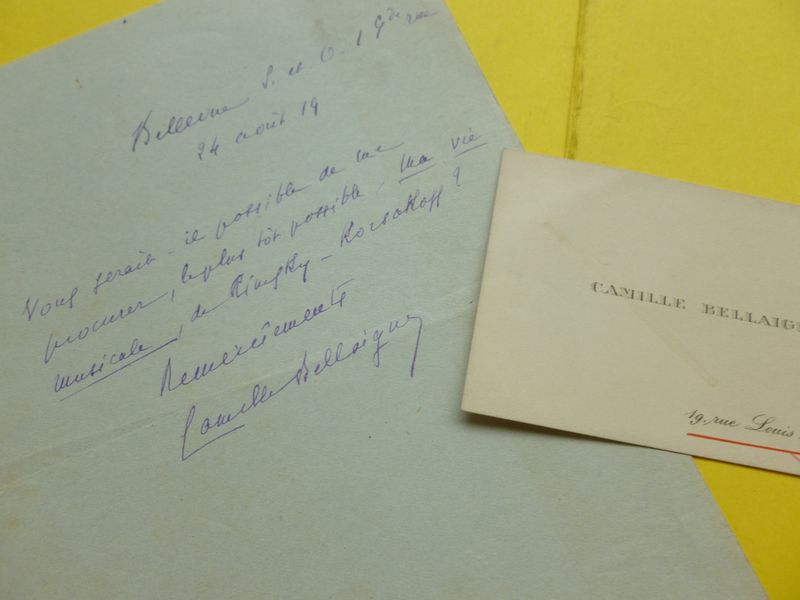 Bellevue S. et O. 1 Gde rue
24 août 19
Vous serait-il possible de me
procurer, le plus tôt possible, ma vie
musicale, de Rimsky-Korsakoff ?
Remerciements
Camille Bellaigue
CAMILLE BELLAIG
19, rue Louis